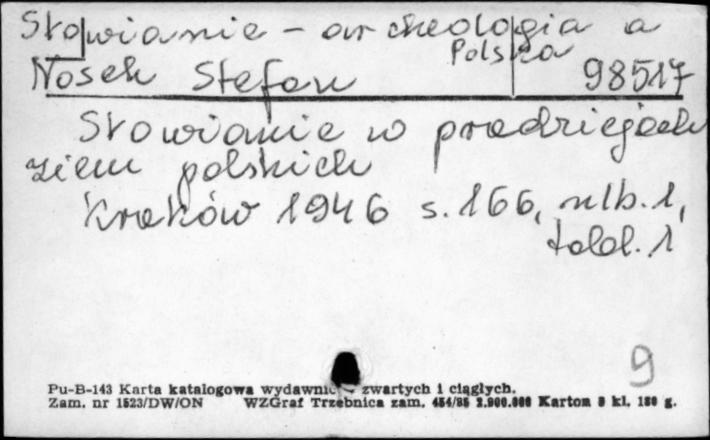 Słowianie - archeologia a
Polska
Nosek Stefan 98517
Słowianie w pradziejach
ziem polskich
Kraków 1946 s. 166, nlb. 1,
tabl. 1
9
Pu-B-143 Karta katalogowa wydawnic - zwartych i ciągłych.
Zam. nr 1523/DW/ON WZGraf Trzebnica zam. 454/85 2.900.000 Karton kl. 180 g.